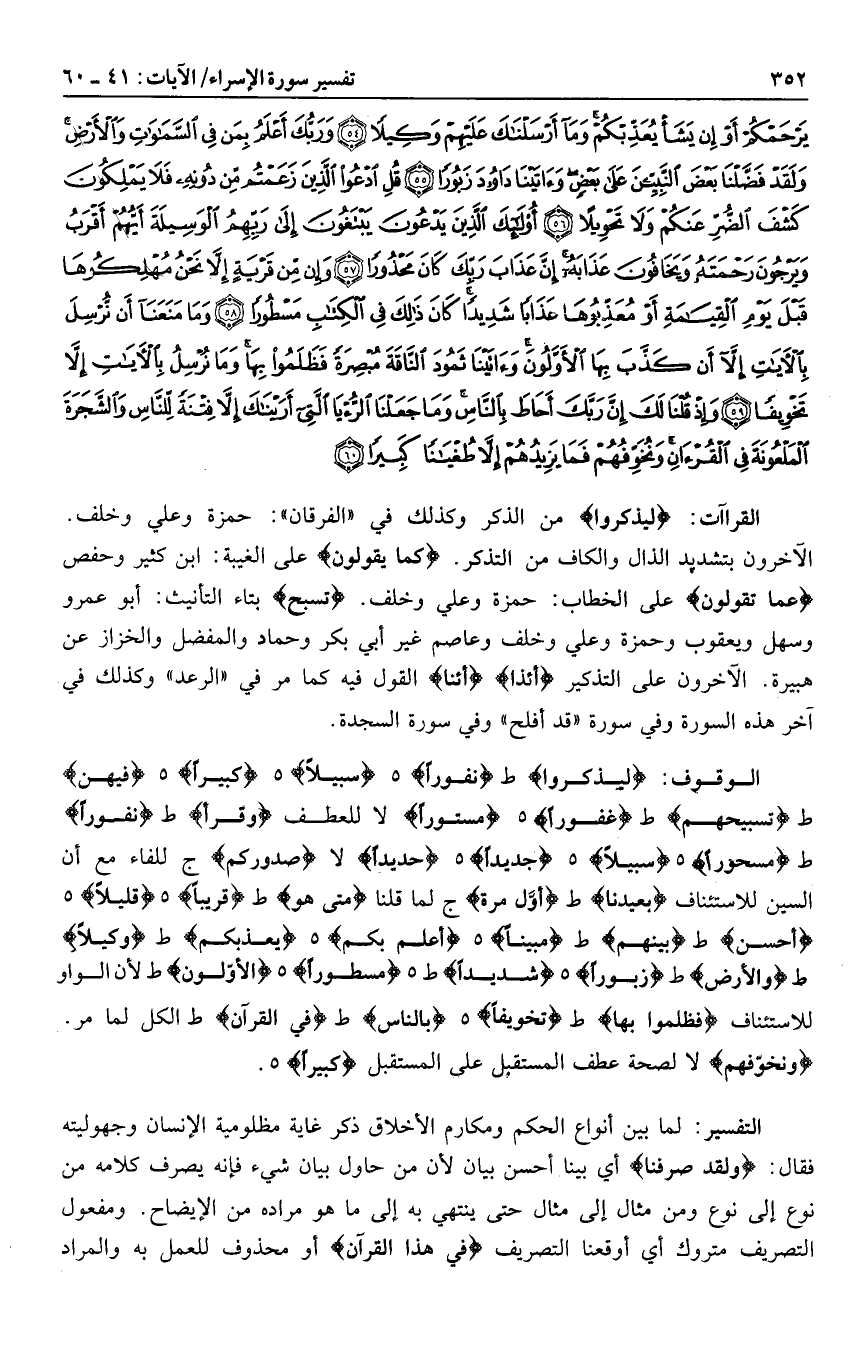 ٣٥٢ تفسير سورة الإسراء/ الآيات: ٤١ - ٦٠
يَرْحَمْكُمْ أَوْ إِن يَشَأْ يُعَذِّبْكُمْ وَمَآ أَرْسَلْنَـٰكَ عَلَيْهِمْ وَكِيلًا ﴿٥٤﴾ وَرَبُّكَ أَعْلَمُ بِمَن فِى ٱلسَّمَـٰوَٰتِ وَٱلْأَرْضِ ۗ
وَلَقَدْ فَضَّلْنَا بَعْضَ ٱلنَّبِيِّـۧنَ عَلَىٰ بَعْضٍ ۖ وَءَاتَيْنَا دَاوُۥدَ زَبُورًا ﴿٥٥﴾ قُلِ ٱدْعُوا۟ ٱلَّذِينَ زَعَمْتُم مِّن دُونِهِۦ فَلَا يَمْلِكُونَ
كَشْفَ ٱلضُّرِّ عَنكُمْ وَلَا تَحْوِيلًا ﴿٥٦﴾ أُو۟لَـٰٓئِكَ ٱلَّذِينَ يَدْعُونَ يَبْتَغُونَ إِلَىٰ رَبِّهِمُ ٱلْوَسِيلَةَ أَيُّهُمْ أَقْرَبُ
وَيَرْجُونَ رَحْمَتَهُۥ وَيَخَافُونَ عَذَابَهُۥٓ ۚ إِنَّ عَذَابَ رَبِّكَ كَانَ مَحْذُورًا ﴿٥٧﴾ وَإِن مِّن قَرْيَةٍ إِلَّا نَحْنُ مُهْلِكُوهَا
قَبْلَ يَوْمِ ٱلْقِيَـٰمَةِ أَوْ مُعَذِّبُوهَا عَذَابًا شَدِيدًا ۚ كَانَ ذَٰلِكَ فِى ٱلْكِتَـٰبِ مَسْطُورًا ﴿٥٨﴾ وَمَا مَنَعَنَآ أَن نُّرْسِلَ
بِٱلْـَٔايَـٰتِ إِلَّآ أَن كَذَّبَ بِهَا ٱلْأَوَّلُونَ ۚ وَءَاتَيْنَا ثَمُودَ ٱلنَّاقَةَ مُبْصِرَةً فَظَلَمُوا۟ بِهَا ۚ وَمَا نُرْسِلُ بِٱلْـَٔايَـٰتِ إِلَّا
تَخْوِيفًا ﴿٥٩﴾ وَإِذْ قُلْنَا لَكَ إِنَّ رَبَّكَ أَحَاطَ بِٱلنَّاسِ ۚ وَمَا جَعَلْنَا ٱلرُّءْيَا ٱلَّتِىٓ أَرَيْنَـٰكَ إِلَّا فِتْنَةً لِّلنَّاسِ وَٱلشَّجَرَةَ
ٱلْمَلْعُونَةَ فِى ٱلْقُرْءَانِ ۚ وَنُخَوِّفُهُمْ فَمَا يَزِيدُهُمْ إِلَّا طُغْيَـٰنًا كَبِيرًا ﴿٦٠﴾
القراآت: ﴿ليذكروا﴾ من الذكر وكذلك في «الفرقان»: حمزة وعلي وخلف.
الآخرون بتشديد الذال والكاف من التذكر. ﴿كما يقولون﴾ على الغيبة: ابن كثير وحفص
﴿عما تقولون﴾ على الخطاب: حمزة وعلي وخلف. ﴿تسبح﴾ بتاء التأنيث: أبو عمرو
وسهل ويعقوب وحمزة وعلي وخلف وعاصم غير أبي بكر وحماد والمفضل والخزاز عن
هبيرة. الآخرون على التذكير ﴿أئذا﴾ ﴿أئنا﴾ القول فيه كما مر في «الرعد» وكذلك في
آخر هذه السورة وفي سورة «قد أفلح» وفي سورة السجدة.
الـوقـوف: ﴿ليـذكـروا﴾ ط ﴿نفـوراً﴾ ٥ ﴿سبيـلاً﴾ ٥ ﴿كبيـراً﴾ ٥ ﴿فيهـن﴾
ط ﴿تسبيحهـم﴾ ط ﴿غفـوراً﴾ ٥ ﴿مستـوراً﴾ لا للعطـف ﴿وقـراً﴾ ط ﴿نفـوراً﴾
ط ﴿مسحوراً﴾ ٥ ﴿سبيلاً﴾ ٥ ﴿جديداً﴾ ٥ ﴿حديداً﴾ لا ﴿صدوركم﴾ ج للفاء مع أن
السين للاستئناف ﴿بعيدنا﴾ ط ﴿أوّل مرة﴾ ج لما قلنا ﴿متى هو﴾ ط ﴿قريباً﴾ ٥ ﴿قليلاً﴾ ٥
﴿أحسـن﴾ ط ﴿بينهـم﴾ ط ﴿مبينـاً﴾ ٥ ﴿أعلـم بكـم﴾ ٥ ﴿يعـذبكـم﴾ ط ﴿وكيـلاً﴾
ط ﴿والأرض﴾ ط ﴿زبـوراً﴾ ٥ ﴿شـديـداً﴾ ط ٥ ﴿مسطـوراً﴾ ٥ ﴿الأوّلـون﴾ ط لأن الـواو
للاستئناف ﴿فظلموا بها﴾ ط ﴿تخويفاً﴾ ٥ ﴿بالناس﴾ ط ﴿في القرآن﴾ ط الكل لما مر.
﴿ونخوّفهم﴾ لا لصحة عطف المستقبل على المستقبل ﴿كبيراً﴾ ٥.
التفسير: لما بين أنواع الحكم ومكارم الأخلاق ذكر غاية مظلومية الإنسان وجهوليته
فقال: ﴿ولقد صرفنا﴾ أي بينا أحسن بيان لأن من حاول بيان شيء فإنه يصرف كلامه من
نوع إلى نوع ومن مثال إلى مثال حتى ينتهي به إلى ما هو مراده من الإيضاح. ومفعول
التصريف متروك أي أوقعنا التصريف ﴿في هذا القرآن﴾ أو محذوف للعمل به والمراد